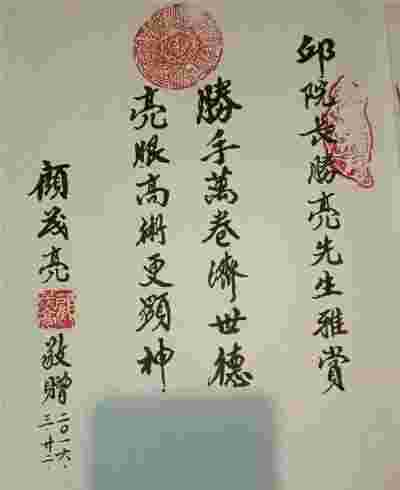 邱院長勝亮先生雅賞
勝手萬卷濟世德
亮眼高術更顯神
顧茂亮
敬贈
二〇一六、
三、廿二